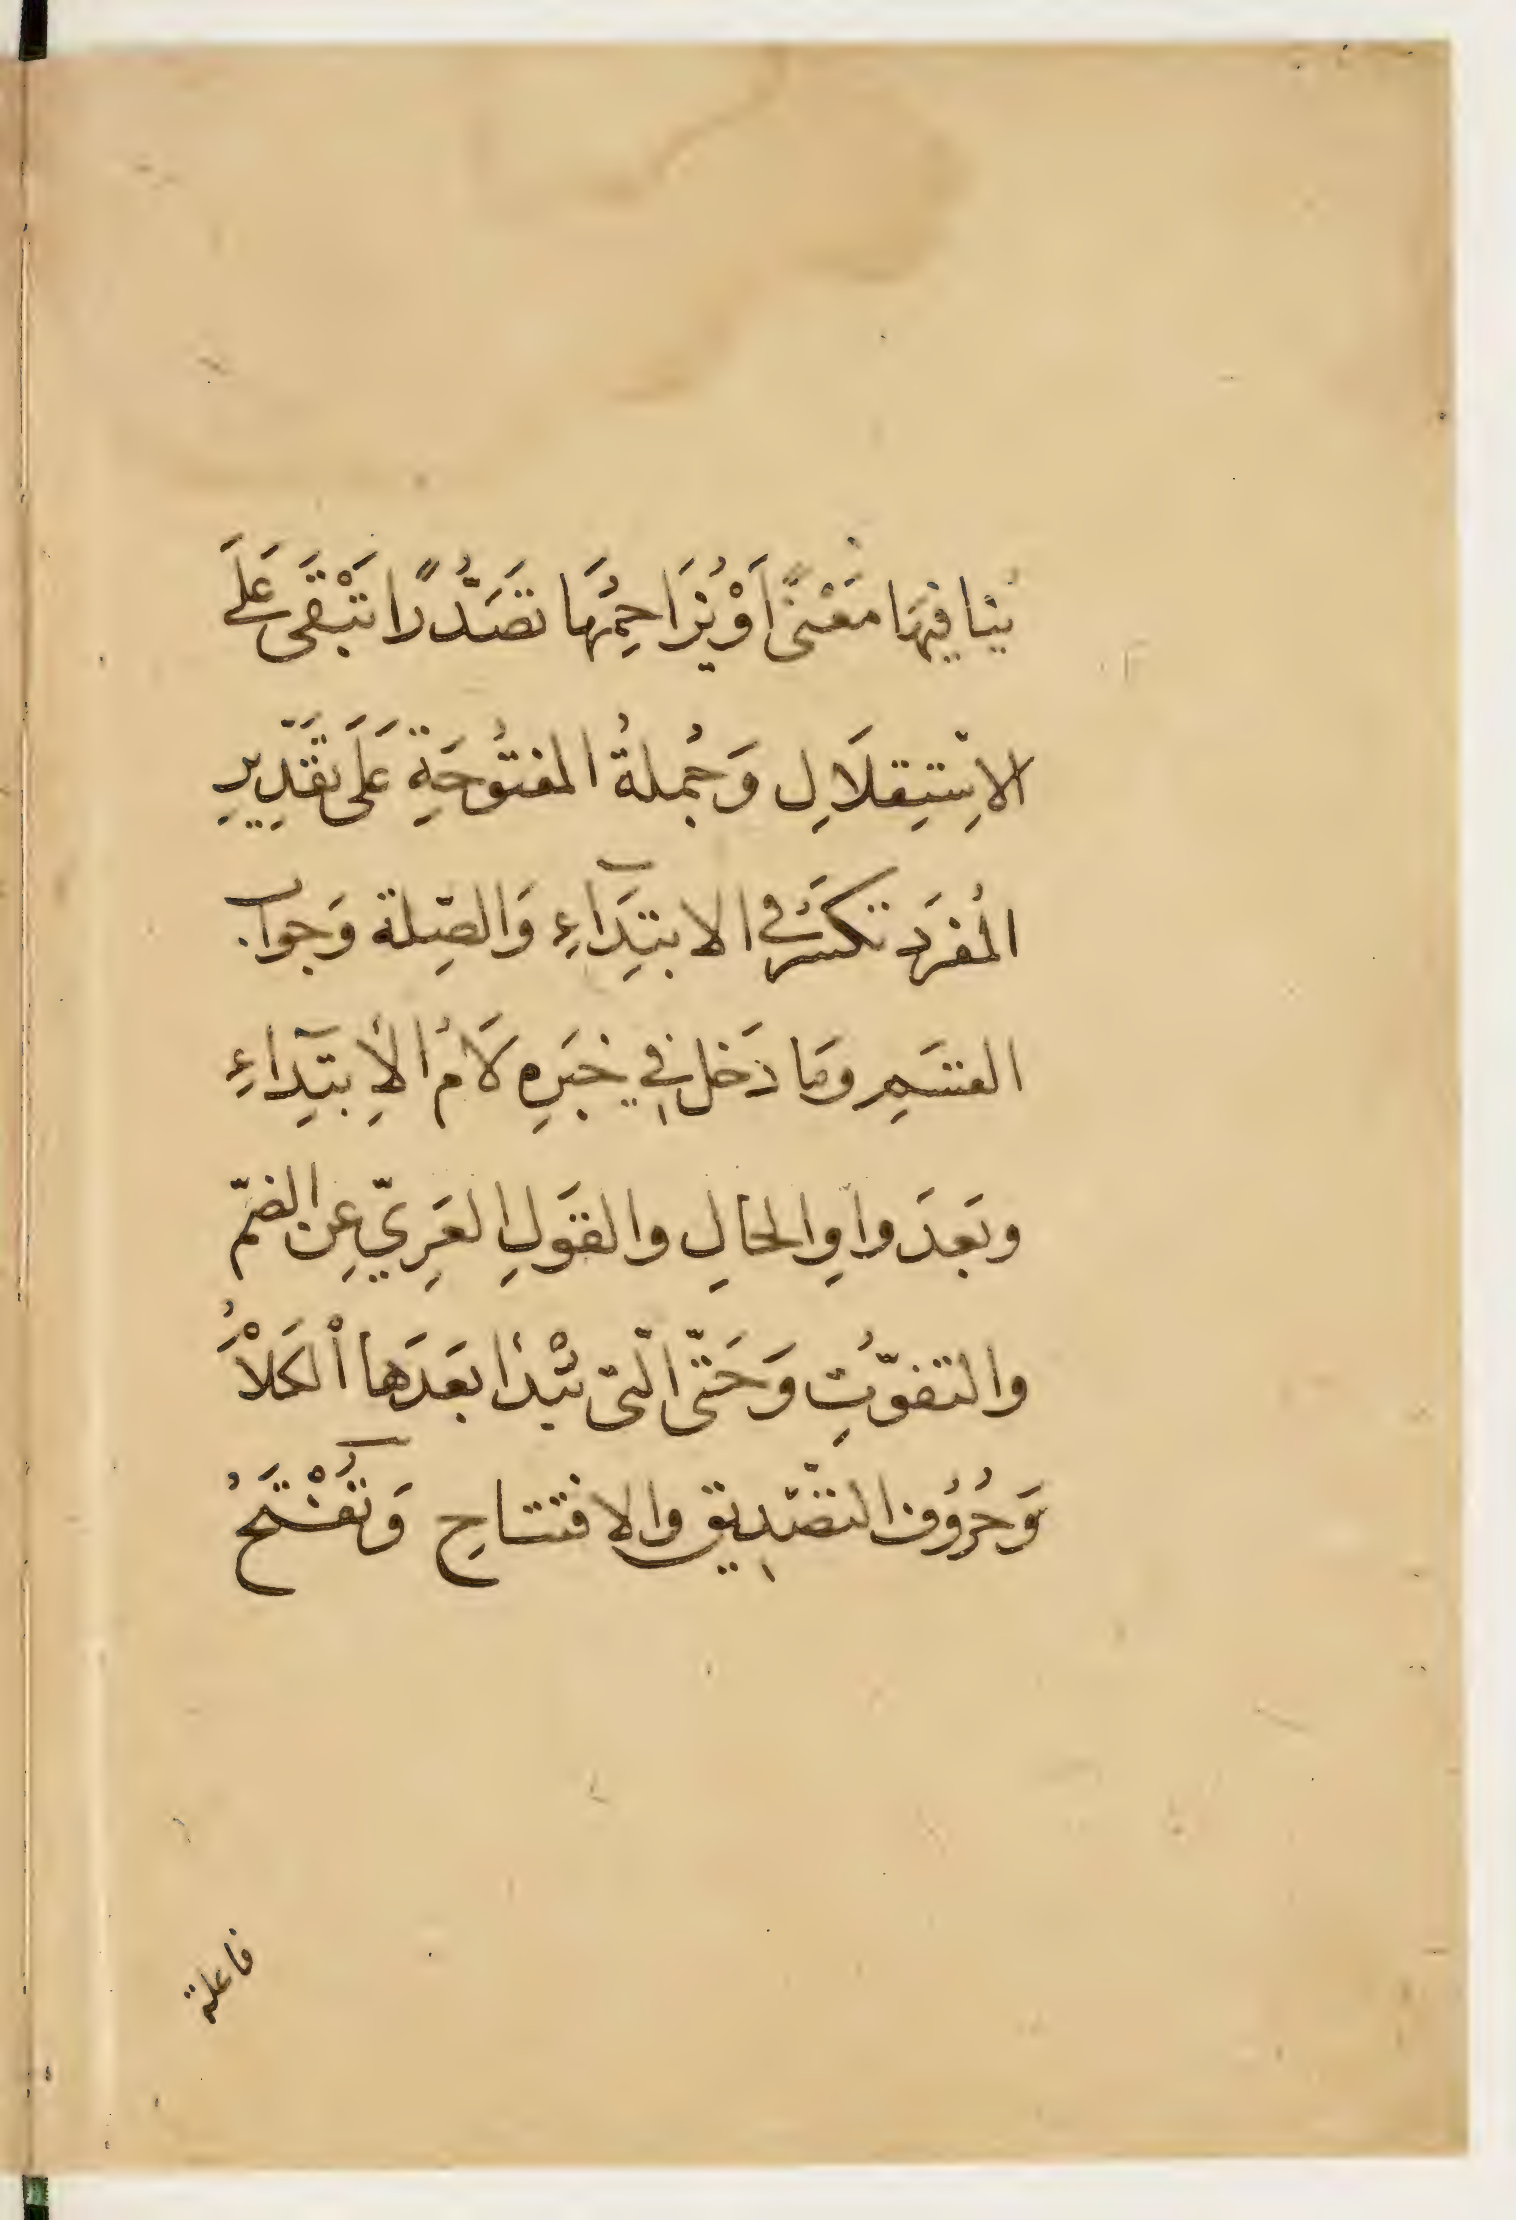 يُنَافِيهَا مَعْنًى اَوْ يُزَاحِمُهَا تَصَدُّرًا تَبْقَى عَلَى
الاِسْتِقلَالِ وَجُملةُ المفتُوحَةِ عَلَى تَقْدِيرِ
المُفرَدِ تكسَرُ في الابتِدَآءِ وَالصِّلة وَجوابِ
القسَمِ وَمَا دَخل فِي خبَرِهِ لَامُ الاِبتِدَآءِ
وبَعدَ واوِ الحالِ والقَولِ العَرِيِّ عِن الضمّ
والتفوّتِ وَحَتّى الّتى يُبْدَأُ بعَدَها اْلكَلاْمُ
وَحُرُوف التصْدِيق والافتتاحِ وَتُفْتَحُ
فاعلة